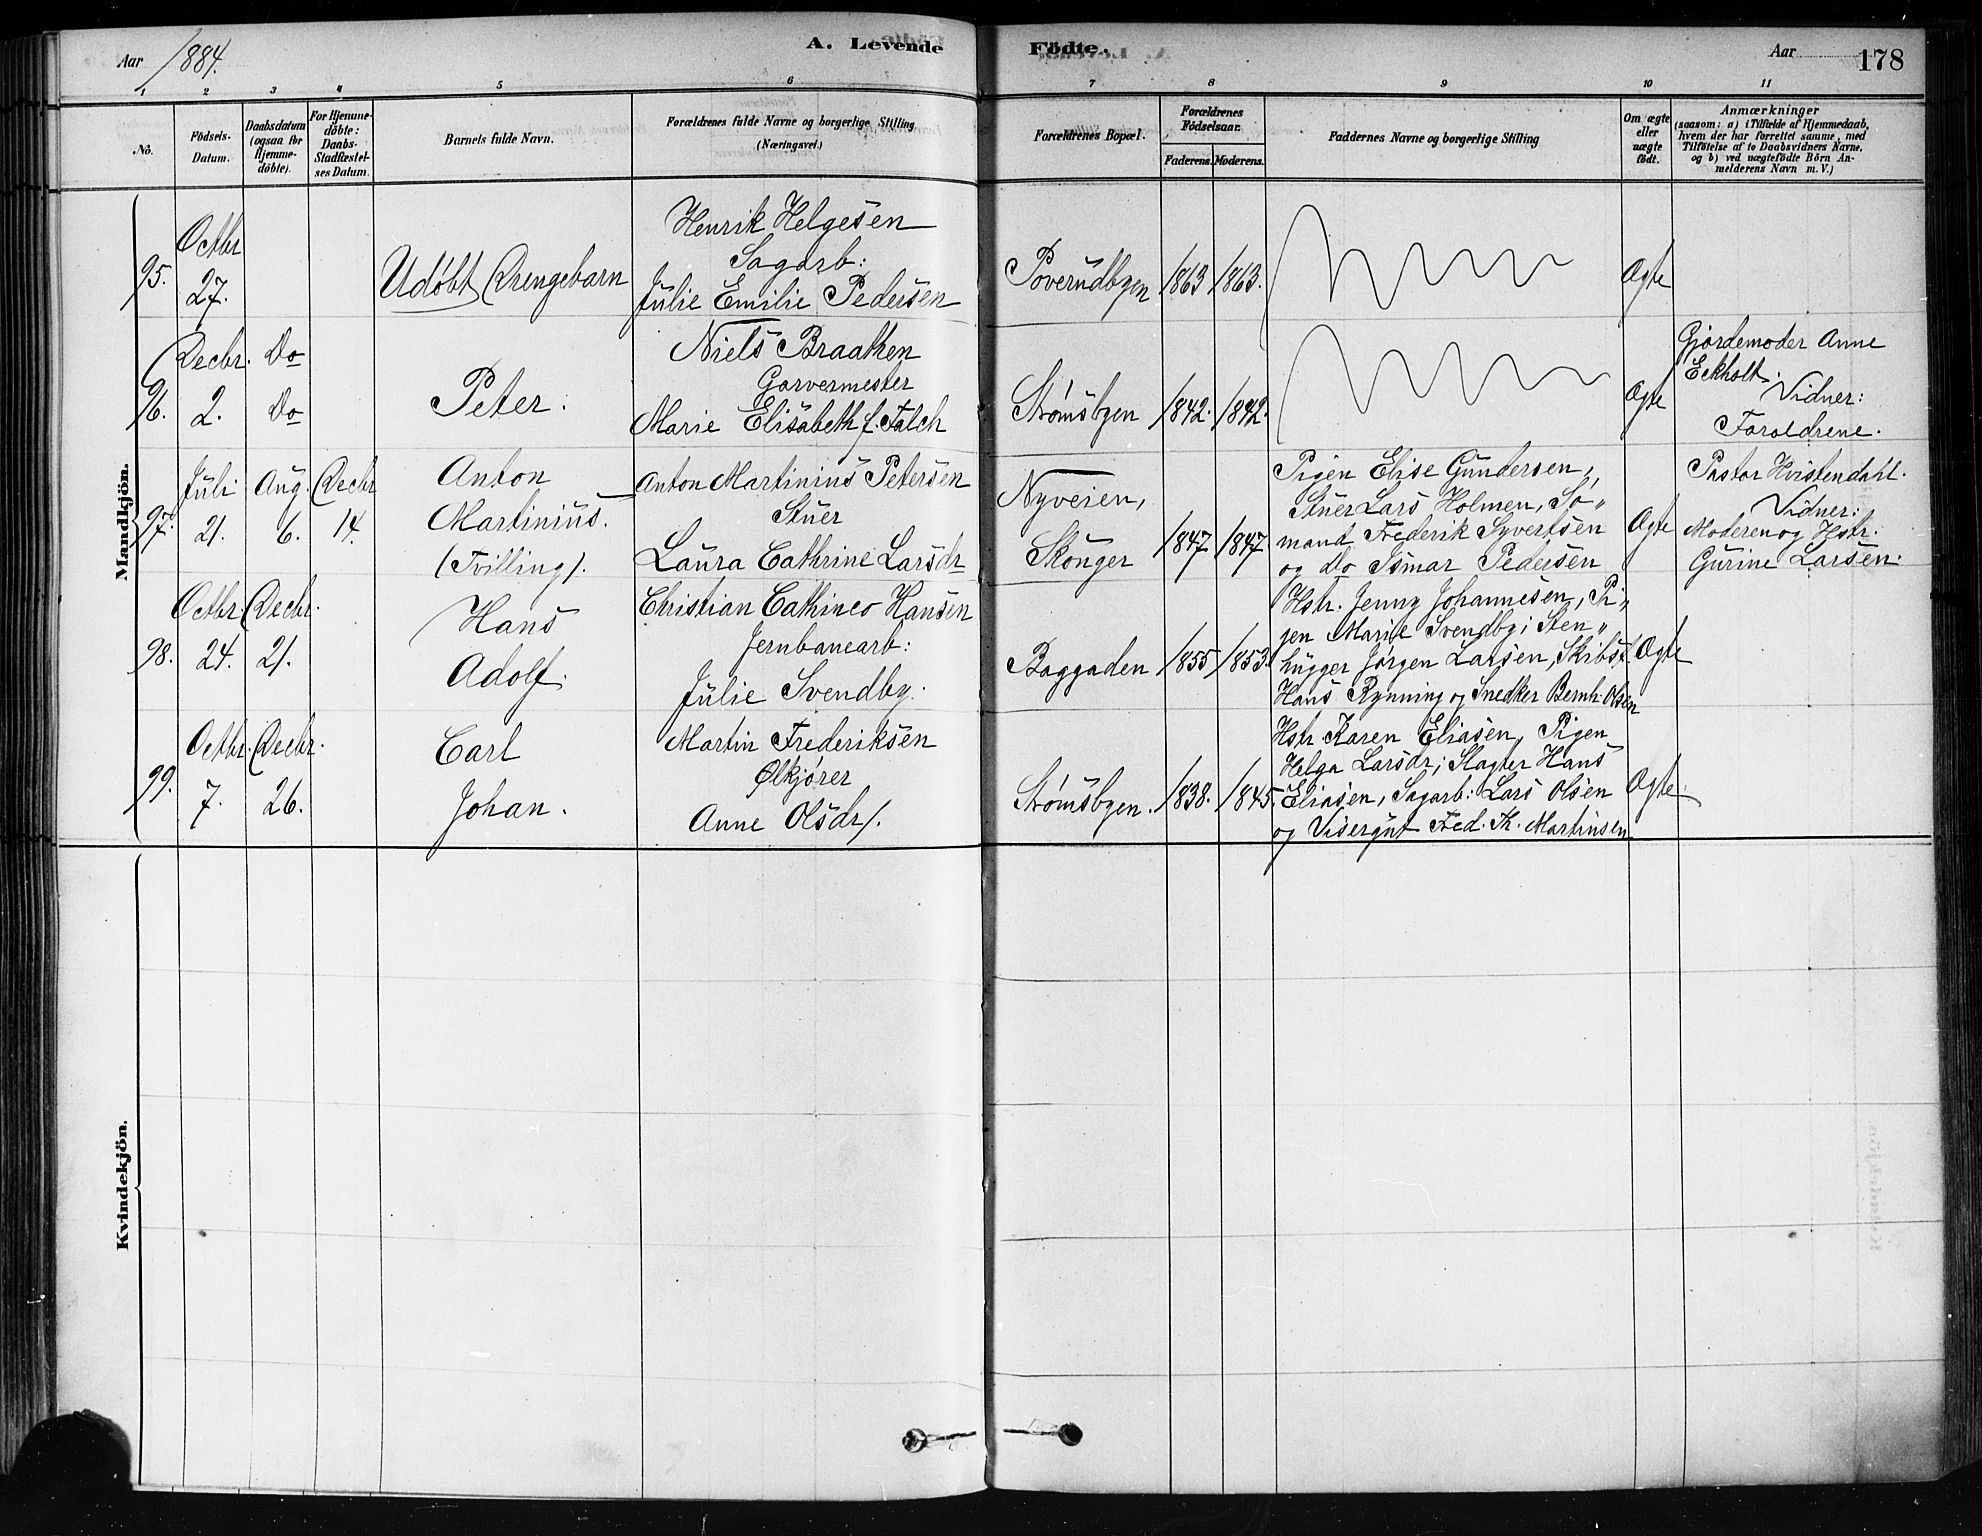 Aar 1884.
A. Levende
Födte.
Aar
178
1
2
3
4
5
6
7
8
9
10
11
No.
Födsels-
Datum.
Daabsdatum
(ogsaa for
Hjemme-
döbte).
For Hjemme-
döbte:
Daabs-
Stadfæstel-
ses Datum.
Barnets fulde Navn.
Forældrenes fulde Navne og borgerlige Stilling
(Næringsvei.)
Forældrenes Bopæl.
Forældrenes
Födselsaar.
Faderens.
Moderens.
Faddernes Navne og borgerlige Stilling
Om ægte
eller
uægte
födt.
Anmærkninger
(saasom: a) i Tilfælde af Hjemmedaab,
hvem der har forrettet samme, med
Tilföielse af to Daabsvidners Navne,
og b) ved uægtefödte Börn An-
melderens Navn m. V.)
Mandkjön.
95.
Octbr
27.
Udøbt Drengebarn
Henrik Helgesen
Sagarb:
Julie Emilie Pedersen
Poverudbyen
1863
1863.
Ægte
96.
Decbr.
2.
Do
Do
Peter.
Niels Braathen
Garvermester
Marie Elisabeth f. Falch
Strømsbyen
1842.
1842.
Ægte
Gjordemoder Anne
Eckholt.
Vidner:
Forældrene.
97.
Juli
21.
Aug.
6.
Decbr
14.
Anton
Martinius.
(Tvilling).
Anton Martinius Petersen
Stuer
Laura Cathrine Larsdr
Nyveien,
Skonger
1847
1847
Pigen Elise Gundersen,
Stuer Lars Holmen, Sø„
mand Frederik Syvertsen
og Do Ismar Pedersen
Ægte
Pastor Hvistendahl.
Vidner:
Moderen og Hstr.
Gurine Larsen.
98.
Octbr.
24.
Decbr.
21.
Hans
Adolf.
Christian Cathineo Hansen
Jernbanearb:
Julie Svendby.
Baggaden
1855
1853.
Hstr. Jenny Johannesen, Pi„
gen Marie Svendby; Sten„
hugger Jørgen Larsen, Skibsf.
Hans Rynning og Snedker Bernh. Olsen
Ægte
99.
Octbr.
7.
Decbr.
26.
Carl
Johan.
Martin Frederiksen
Ølkjører
Anne Olsdr.
Strømsbyen.
1838.
1845.
Hstr Karen Eliasen, Pigen
Helga Larsdr; Slagter Hans
Eliasen, Sagarb: Lars Olsen
og Visergut Fred. Th. Martinsen
Ægte.
Kvindekjön.